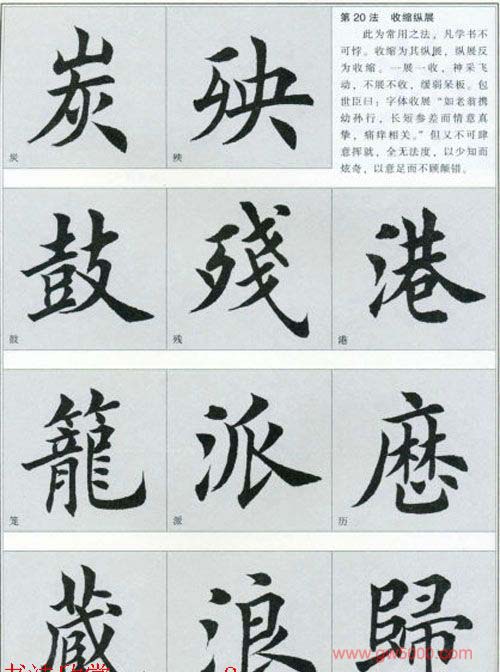 第20法 收缩纵展
此为常用之法，凡学书不
可悖。收缩为其纵展，纵展反
为收缩。一展一收，神采飞
动，不展不收，缓弱呆板。包
世臣曰：字体收展“如老翁携
幼孙行，长短参差而情意真
挚，痛痒相关。”但又不可肆
意挥就，全无法度，以少知而
炫奇，以意足而不顾颠错。
炭 殃
炭 殃
鼓 殘 港
鼓 残 港
籠 派
笼 派 历
藏 浪 歸